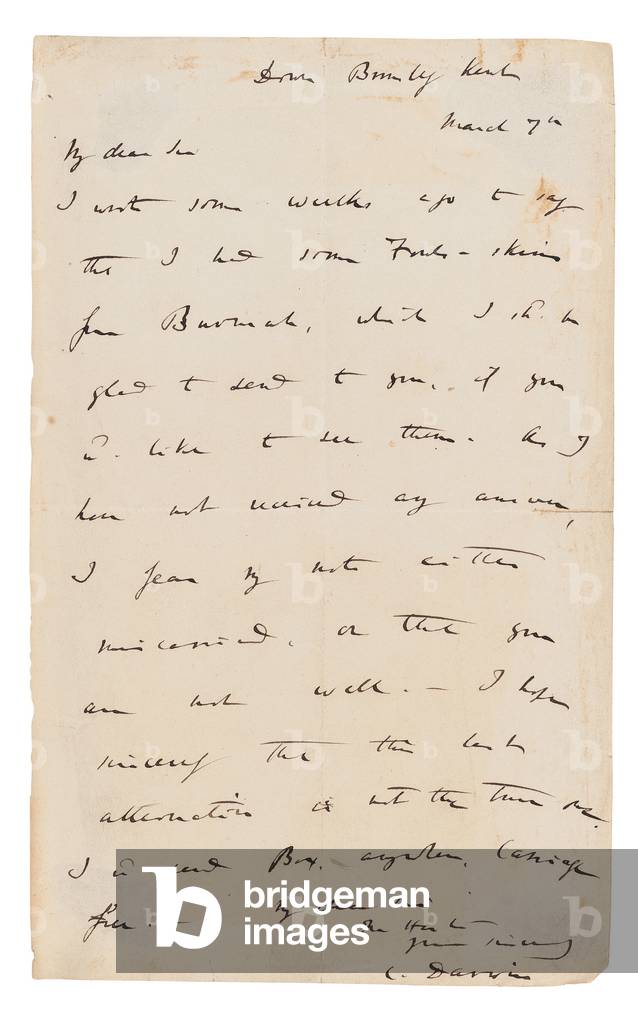 Down Bromley Kent
March 7th
My dear Sir
I wrote some weeks ago to say
that I had some Fowls-skins
from Burmah, which I shd. be
glad to send to you, if you
wd. like to see them. As I
have not received any answer,
I fear my note either
miscarried, or that you
are not well. — I hope
sincerely that this last
alternative is not the true one.
I wd send Box, anywhere, Carriage
free. — My dear Sir
yours sincerely
C. Darwin
b bridgeman
images